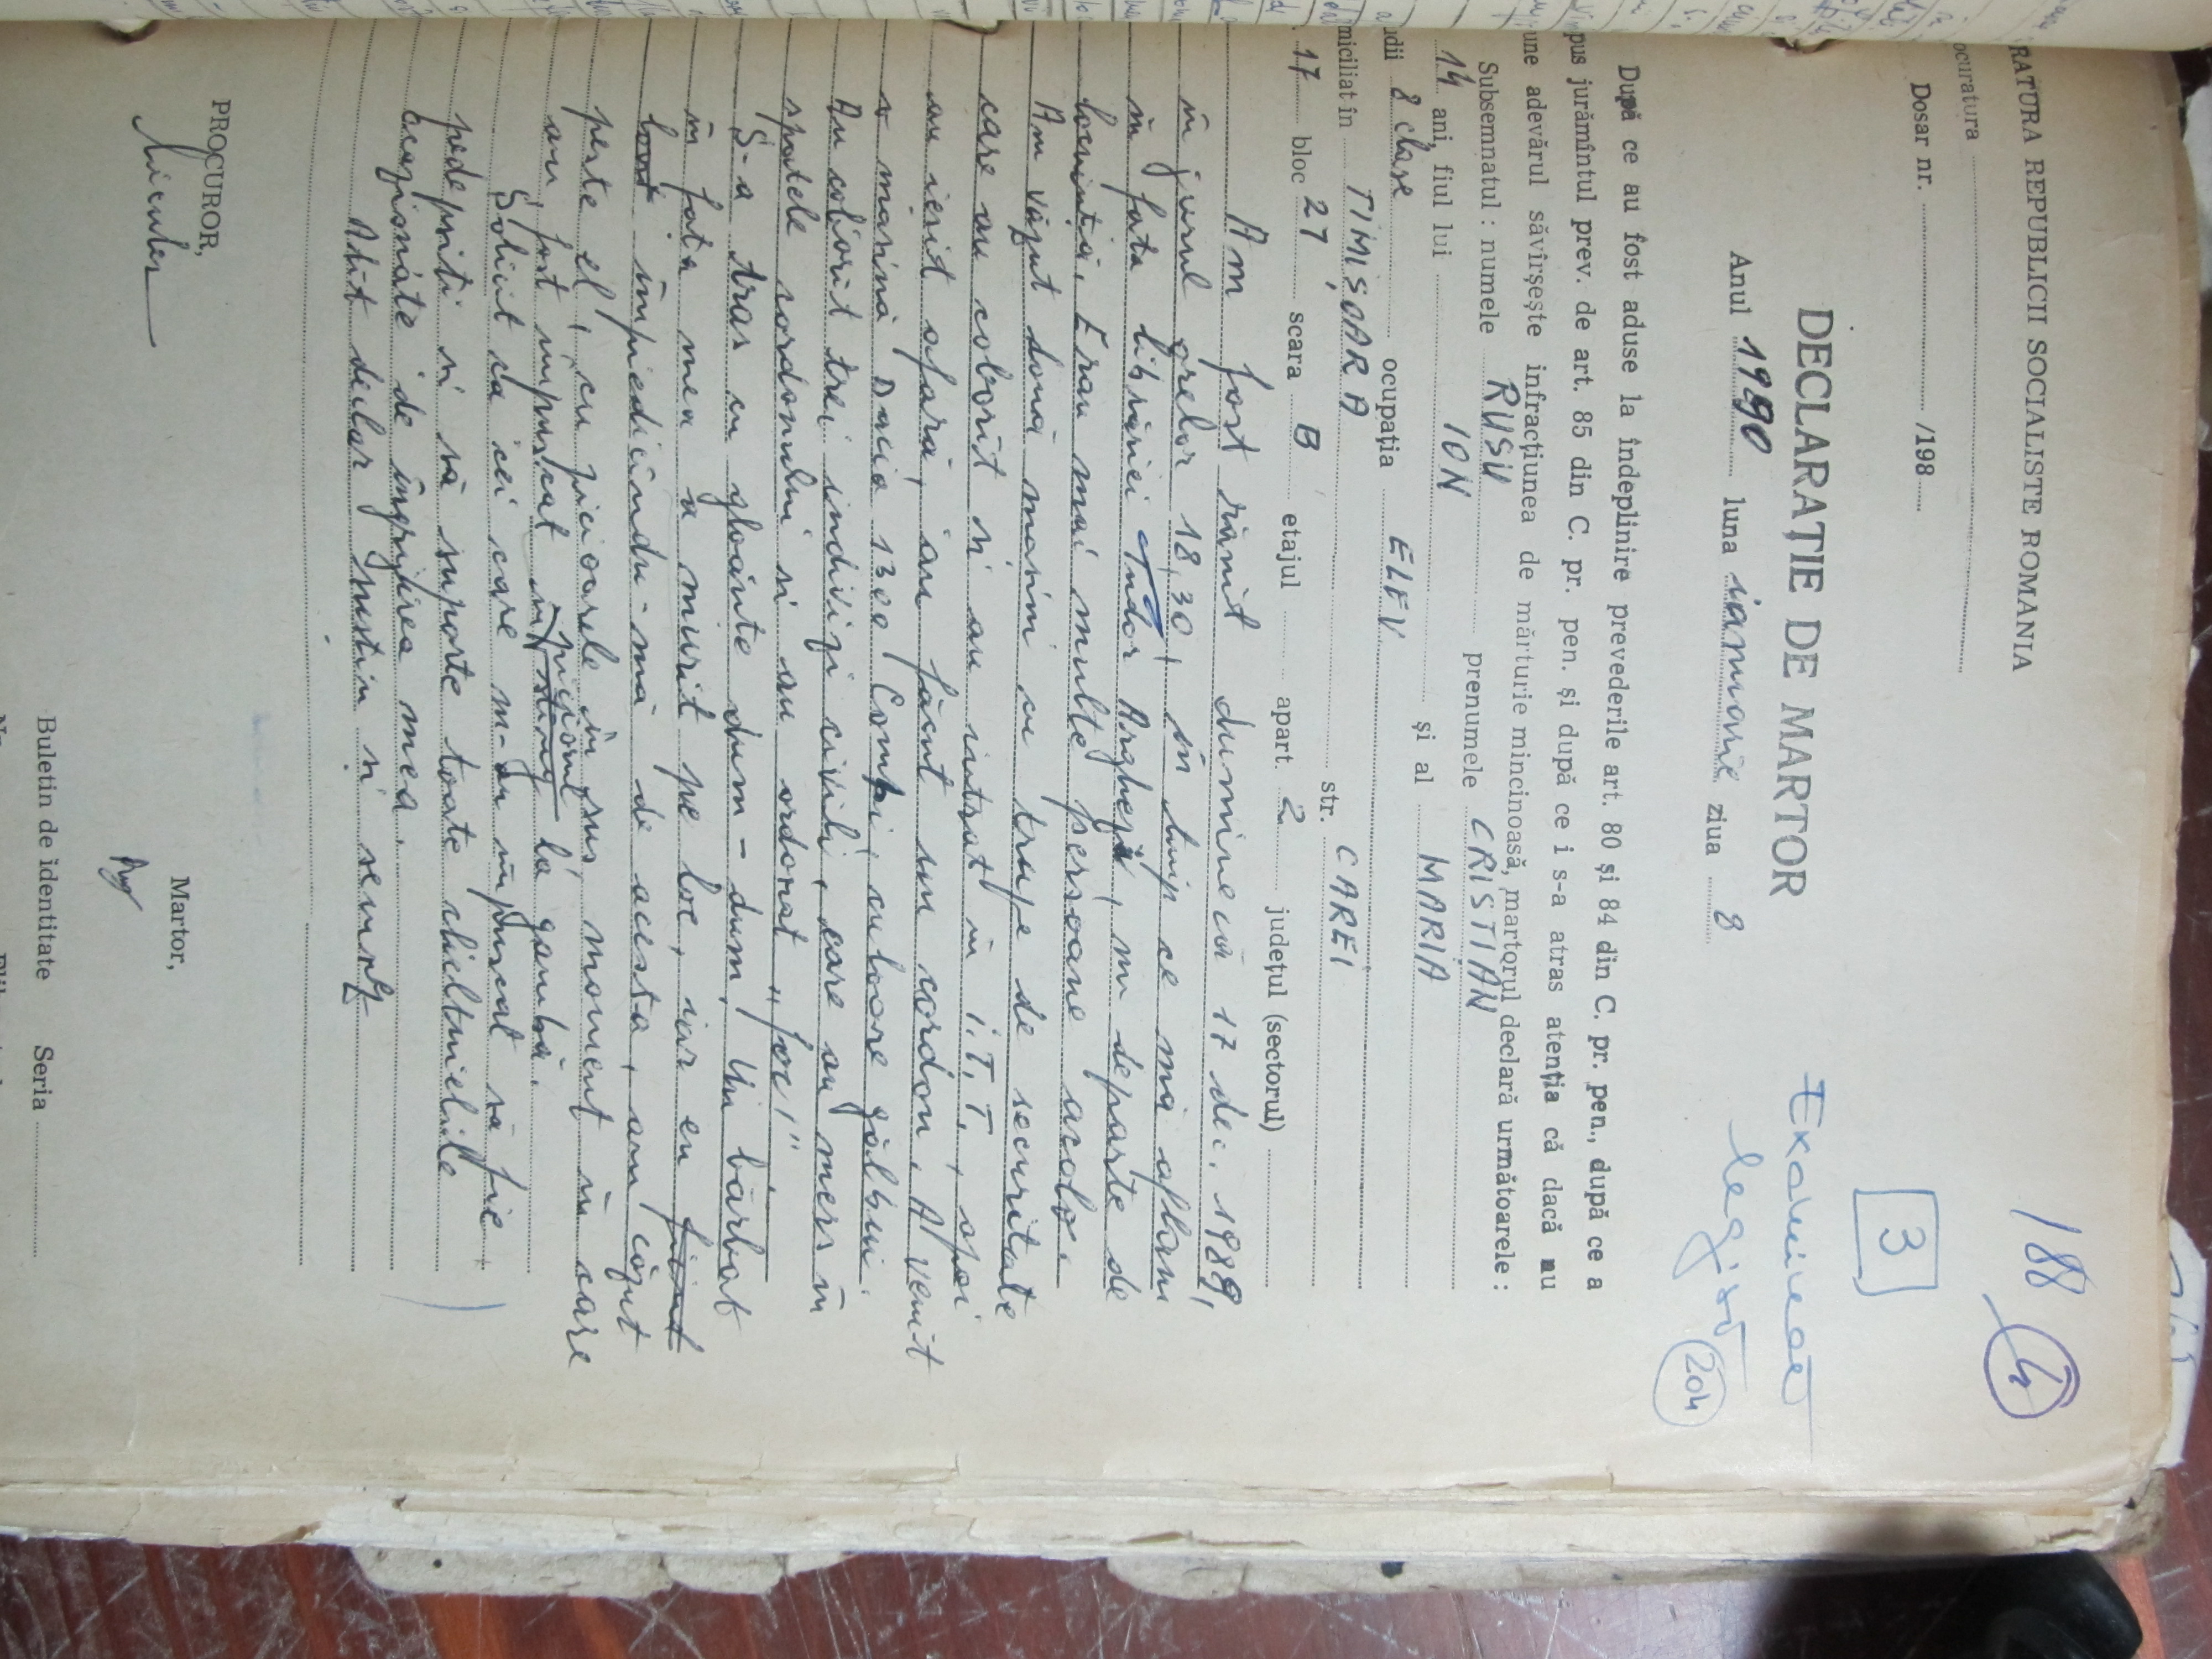 188
4
3
RATURA REPUBLICII SOCIALISTE ROMANIA
ocuratura
Dosar nr. /198
Examinat
legist
204
DECLARAŢIE DE MARTOR
Anul 1990 luna ianuarie ziua 8
După ce au fost aduse la îndeplinire prevederile art. 80 şi 84 din C. pr. pen., după ce a
pus jurămîntul prev. de art. 85 din C. pr. pen. şi după ce i s-a atras atenţia că dacă nu
une adevărul săvîrşeşte infracţiunea de mărturie mincinoasă, martorul declară următoarele :
Subsemnatul : numele RUSU prenumele CRISTIAN
14 ani, fiul lui ION şi al MARIA
dii 8 clase ocupaţia ELEV
miciliat în TIMIŞOARA str. CAREI
17 bloc 27 scara B etajul apart. 2 judeţul (sectorul)
Am fost rănit duminecă 17 dec. 1989,
în jurul orelor 18,30, în timp ce mă aflam
în fata librăriei Tudor Arghezi, nu departe de
locuintă. Erau mai multe persoane acolo.
Am văzut două masini cu trupe de securitate
care au coborît si au intrat în I.T.T., apoi
au iesit afară, au făcut un cordon. A venit
o masină Dacia 1300 Combi, culoare galbui.
Au coborît trei indivizi civili, care au mers în
spatele cordonului si au ordonat "foc!"
S-a tras cu gloante dum-dum. Un bărbat
în fata mea a murit pe loc, iar eu fiind
lovit împiedicîndu-mă de acesta, am căzut
peste el, cu picioarele în sus, moment în care
am fost împuscat în piciorul stîng la gambă.
Solicit ca cei care m-au împuscat să fie
pedepsiti si să suporte toate cheltuielile
ocazionate de îngrijirea mea.
Atît declar, sustin si semnez
PROCUROR,
Martor,
Buletin de identitate Seria